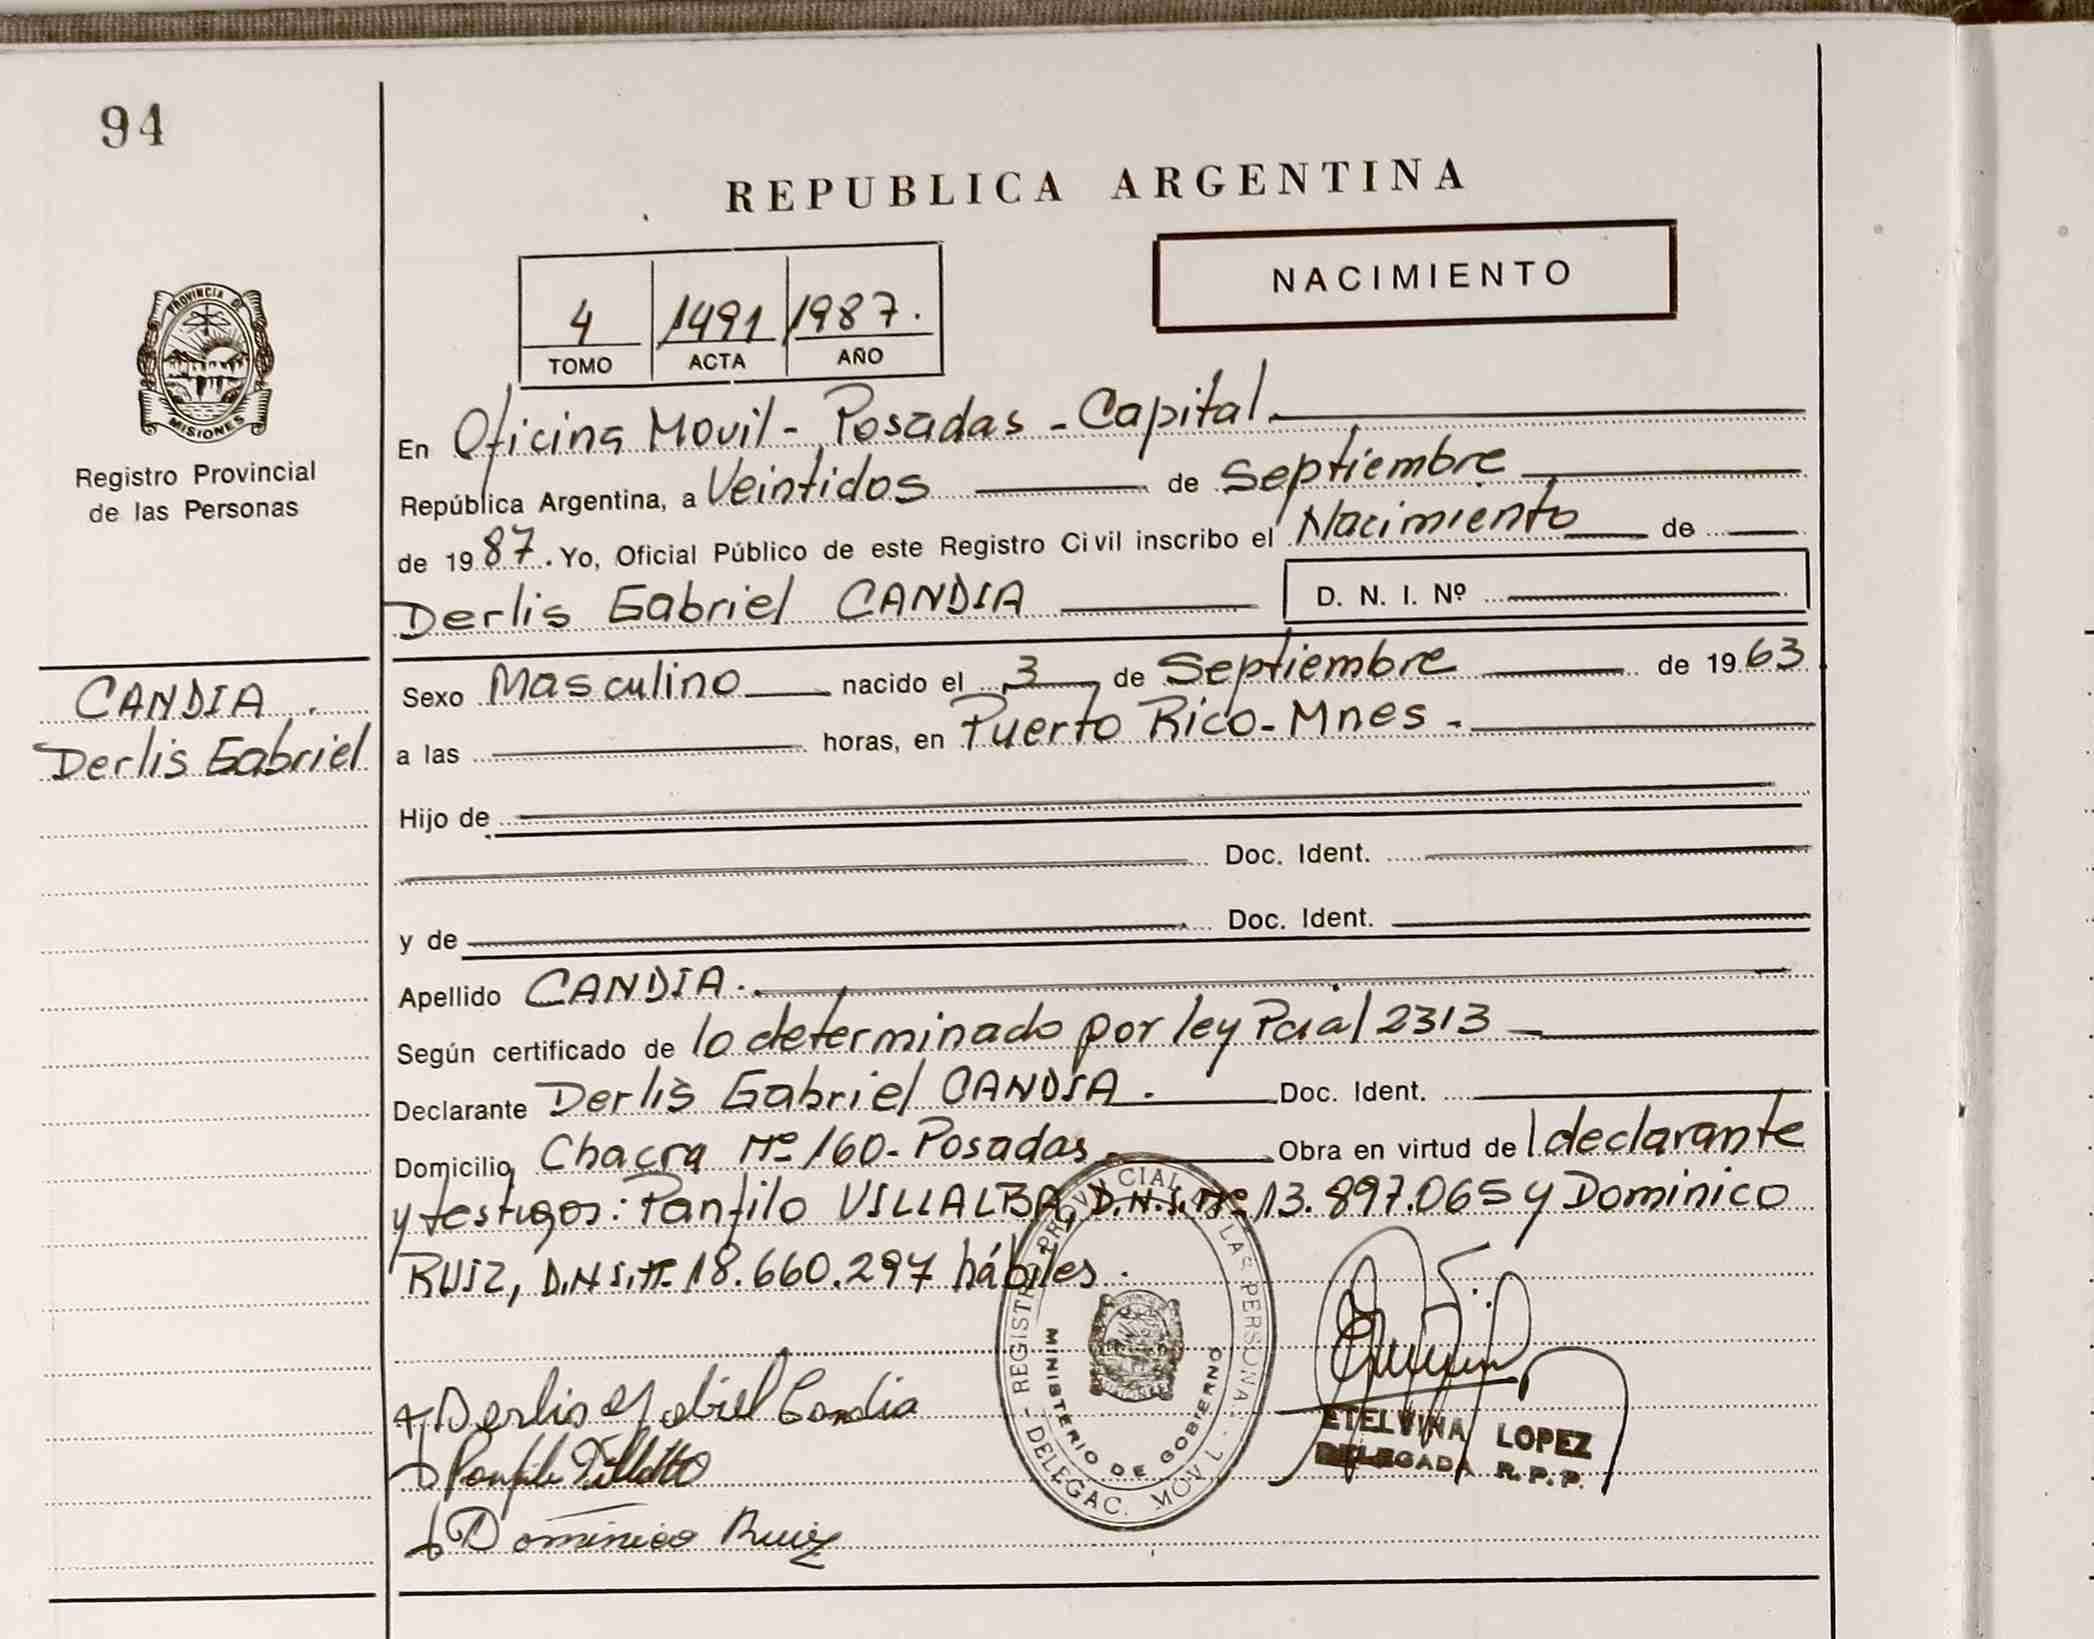 94
REPUBLICA ARGENTINA
NACIMIENTO
4 1491 1987.
TOMO ACTA AÑO
PROVINCIA DE
MISIONES
Registro Provincial
de las Personas
En Oficina Movil - Posadas - Capital
República Argentina, a Veintidos de Septiembre
de 1987. Yo, Oficial Público de este Registro Civil inscribo el Nacimiento de
Derlis Gabriel CANDIA D. N. I. Nº
CANDIA.
Derlis Gabriel
Sexo Masculino nacido el 3 de Septiembre de 1963
a las horas, en Puerto Rico - Mnes -
Hijo de
Doc. Ident.
y de Doc. Ident.
Apellido CANDIA.
Según certificado de lo determinado por ley Pcial 2313
Declarante Derlis Gabriel CANDIA. Doc. Ident.
Domicilio Chacra Nº 160 - Posadas Obra en virtud de l declarante
y testigos: Panfilo VILLALBA, D.N.I. Nº 13.897.065 y Dominico
RUIZ, D.N.I. Nº 18.660.297 hábiles.
Derlis Gabriel Candia
Dominico Ruiz
REGISTRO PROVINCIAL DE LAS PERSONAS
MINISTERIO DE GOBIERNO
DELEGAC. MOVIL
ETELVINA LOPEZ
DELEGADA R.P.P.